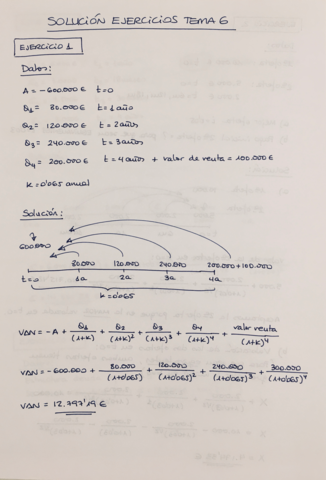 SOLUCIÓN EJERCICIOS TEMA 6
EJERCICIO 1
Datos:
A = -600.000 € t=0
Q1 = 80.000 € t = 1 año
Q2 = 120.000 € t = 2 años
Q3 = 240.000 € t = 3 años
Q4 = 200.000 € t = 4 años + valor de venta = 100.000 €
K = 0'065 anual
Solución:
600.000
80.000 120.000 240.000 200.000+100.000
t=0 1a 2a 3a 4a
K = 0'065
VAN = -A + Q1/(1+K) + Q2/(1+K)² + Q3/(1+K)³ + Q4/(1+K)⁴ + valor venta/(1+K)⁴
VAN = -600.000 + 80.000/(1+0'065) + 120.000/(1+0'065)² + 240.000/(1+0'065)³ + 300.000/(1+0'065)⁴
VAN = 12.797'19 €